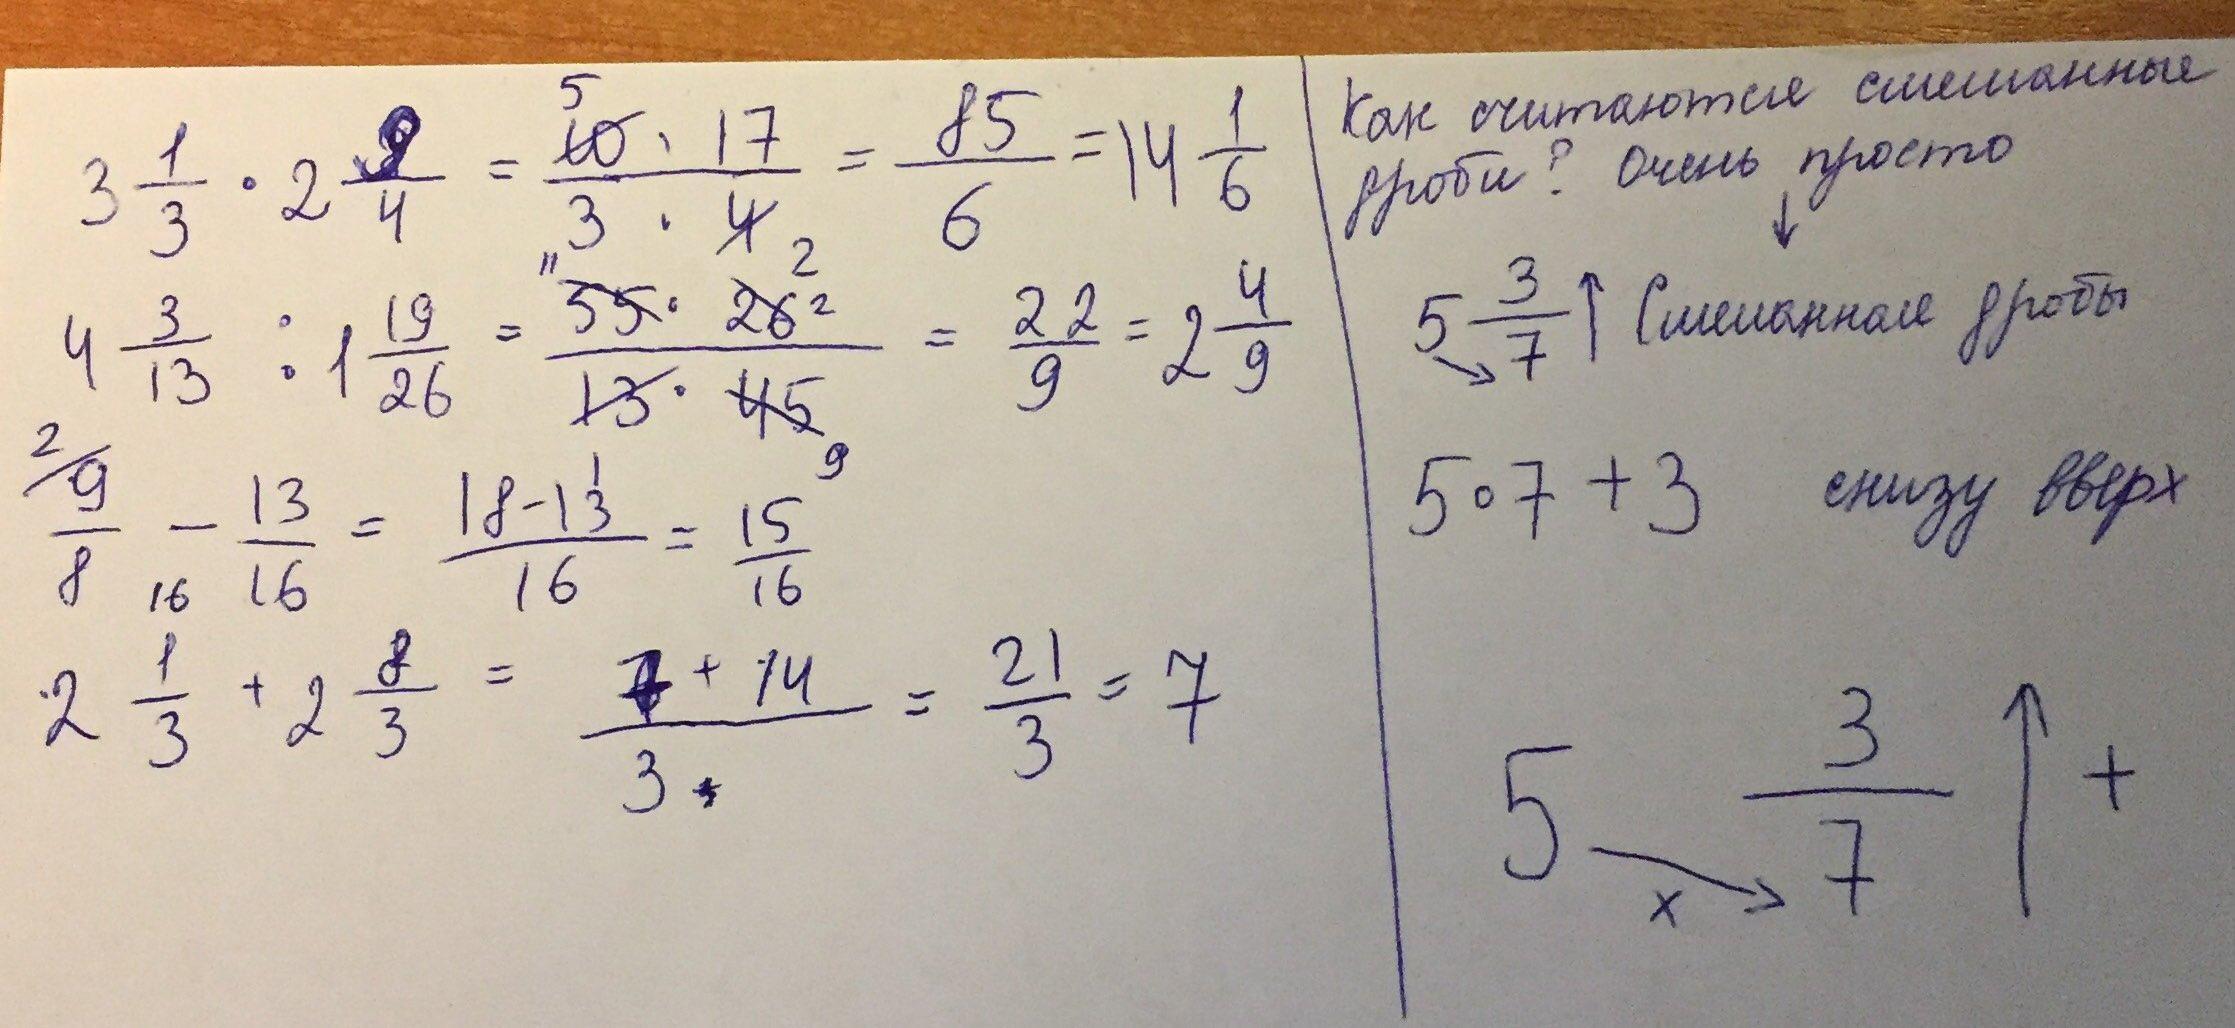 3 1/3 · 2 9/4 = 5 10 · 17 / 3 · 4 2 = 85/6 = 14 1/6
4 3/13 : 1 19/26 = 11 55 · 26 2 / 13 · 45 9 = 22/9 = 2 4/9
2/ 9/8 - 13/16 = 18-13/16 = 15/16
16
2 1/3 + 2 8/3 = 7 + 14 / 3 = 21/3 = 7
Как считаются смешанные
дроби? Очень просто
↓
5 3/7 ↑ Смешанная дробь
5·7+3 снизу вверх
5 3/7 ↑ +
x